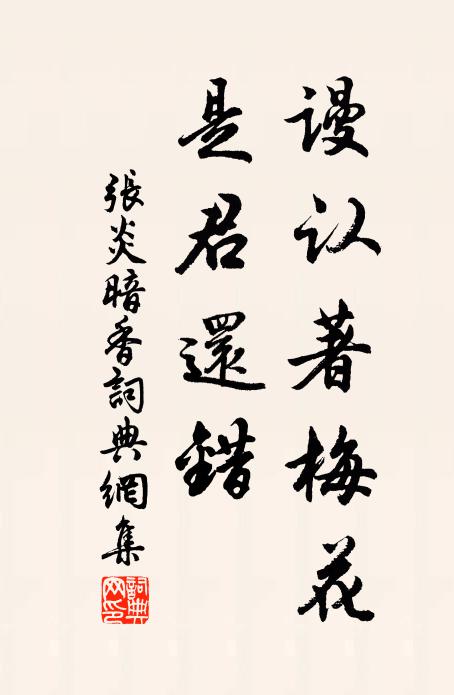 謾认著梅花
是君還錯
張炎暗香詞典網集
詞典网印